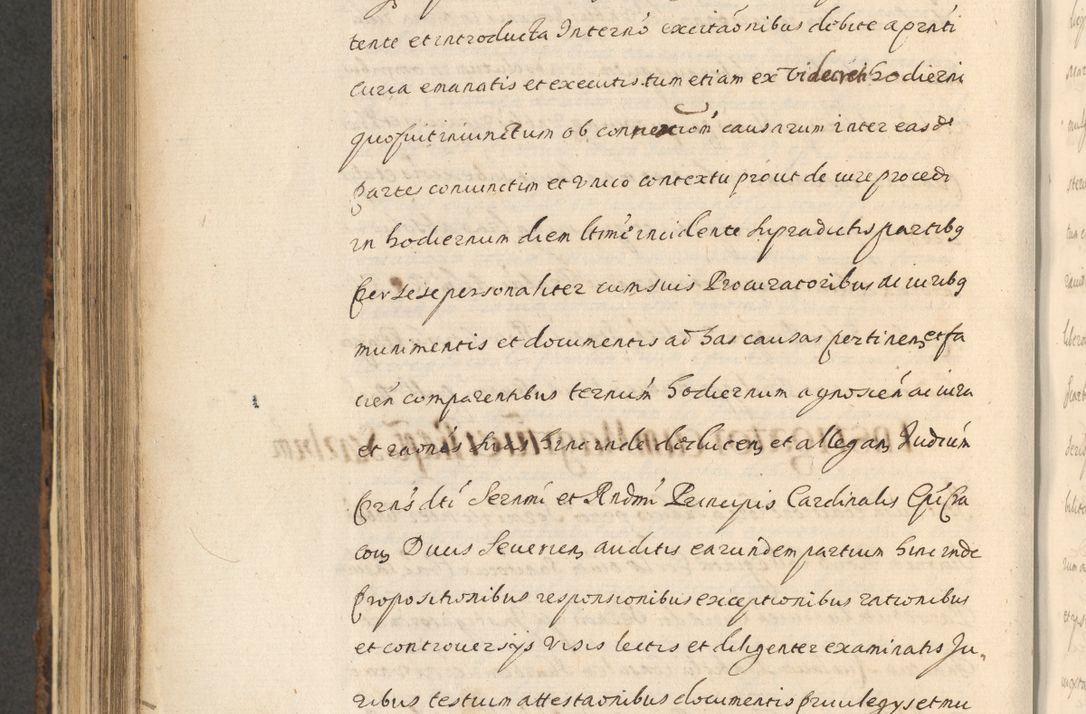 tente et introducta Interno excitaõnibus debite a prnti
curia emanatis et executis tum etiam ex vi decreti hodierni
quo fuit iniunctum ob connexiom causarum inter easd
partes coniunctim et unico contextu prout de iure procedi
in hodiernum diem ltimé incidente supradictis partibq
per se se personaliter cum suis Procuratoribus ac iuribq
munimentis et documentis ad has causas pertinen et fa
cien comparentibus ternum hodiernum agnoscen ac iura
et raones suas hinc inde deducen et allegan Iudiúm
prns dti Sernmi et Rndmi Principis Cardinalis Epi Cra
cou Ducis Seuerien auditis earundem partium hinc inde
propositionibus responsionibus exceptionibus rationibus
et controuersijs visis lectis et diligenter examinatis Ju-
ribus testium attestaonibus documentis priuilegys et mu